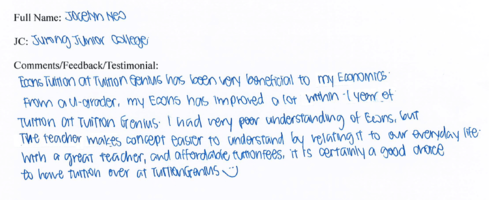 Full Name: Jocelyn Neo
JC: Jurong Junior College
Comments/Feedback/Testimonial:
Econs Tuition at Tuition Genius has been very beneficial to my Economics.
From a U-grader, my Econs has improved a lot within 1 year of
tuition at Tuition Genius. I had very poor understanding of Econs, but
the teacher makes concept easier to understand by relating it to our everyday life.
With a great teacher, and affordable tuition fees, it is certainly a good choice
to have tuition over at Tuition Genius :)